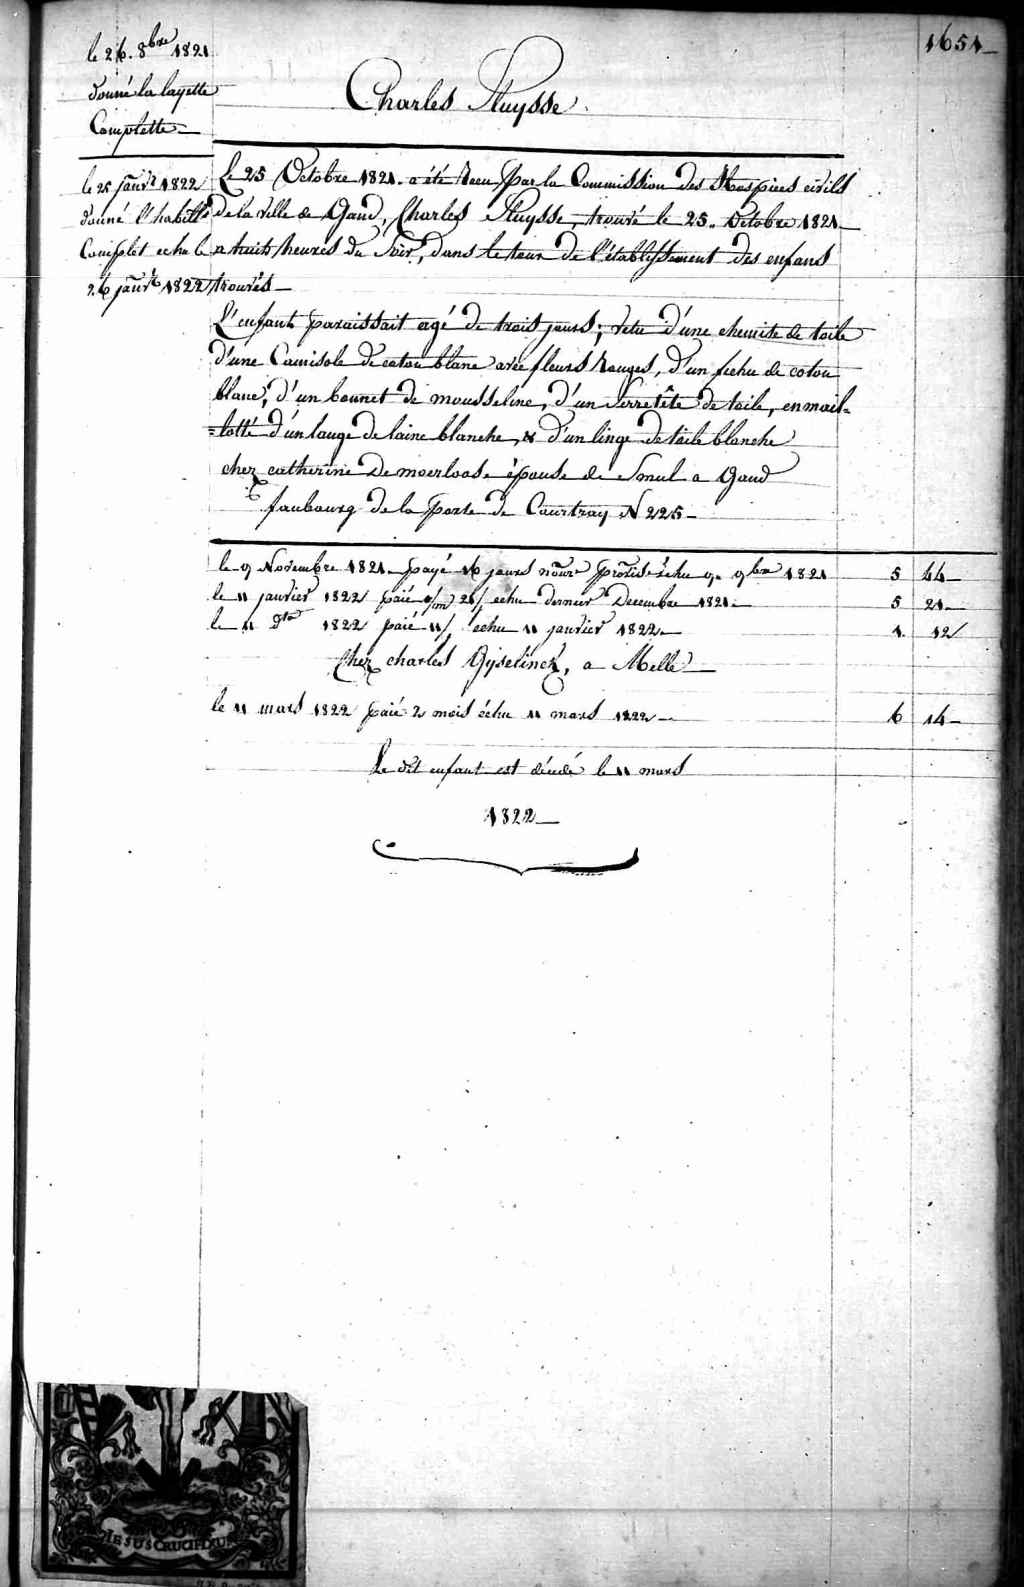 1651
le 26. 8bre 1821
donné la layette
Complette
Charles Sluysse
le 25 Janvr 1822
donné l'habillt
Complet echu le
26 janvr 1822
Le 25 Octobre 1821. a été recu par la Commission des Hospices civils
de la ville de Gand, Charles Sluysse, trouvé le 25. Octobre 1821
a huit heures du soir, dans le tour de l'établissement des enfans
trouvés
L'enfant paraissait agé de trois jours; vetu d'une chemise de toile
d'une Camisole de coton blanc avec fleurs rouges, d'un fichu de coton
blanc, d'un bonnet de mousseline, d'un serretête de toile, enmail-
=lotté d'un lange de laine blanche, & d'un linge de toile blanche
chez catherine De moerloose épouse de Smul a Gand
faubourg de la porte de Courtray N 225
le 9 Novembre 1821 payé 16 jours nourre provis echu 9. 9bre 1821 5 44
le 11 janvier 1822 paié 1/m 21/j echu dernier Decembre 1821 5 21
le 11 dto 1822 paié 11/j echu 11 janvier 1822 1. 12
Chez charles Gyselinck, a Melle
le 11 mars 1822 paié 2 mois échu 11 mars 1822 6 14
Le dit enfant est décédé le 11 mars
1822
JESUS CRUCIFIXUS